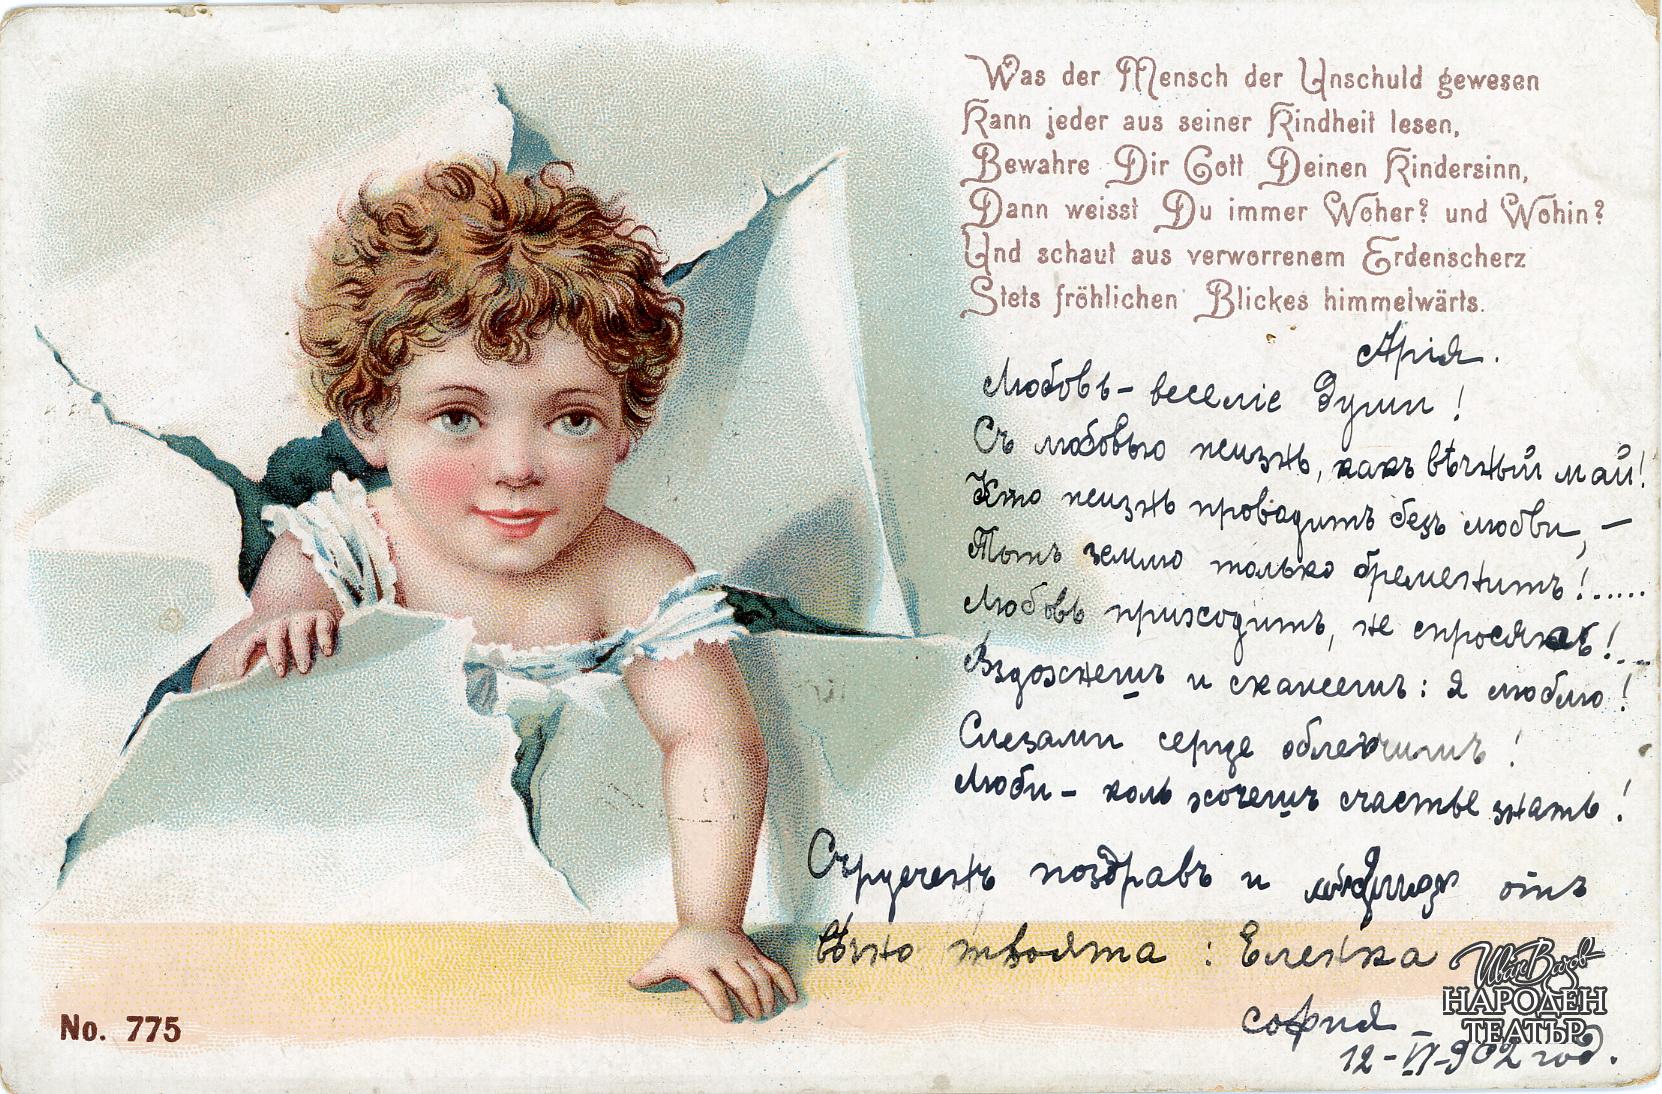 Was der Mensch der Unschuld gewesen
Kann jeder aus seiner Kindheit lesen,
Bewahre Dir Gott Deinen Kindersinn,
Dann weisst Du immer Woher? und Wohin?
Und schaut aus verworrenem Erdenscherz
Stets fröhlichen Blickes himmelwärts.
Арія.
Любовь - веселіе души!
Съ любовью жизнь, какъ вѣчный май!
Кто жизнь проводитъ безъ любви, -
Тотъ землю только бременитъ!......
Любовь приходитъ, не спросясь!...
Вздохнешъ и скажешъ: Я люблю!
Слезами серце облегчишъ!
Люби - коль хочешъ счастье знать!
Сърдеченъ поздравъ и отъ
вѣчно твоята: Еленка
София -
12-VI-902 год.
No. 775
Иван Вазов
НАРОДЕН
ТЕАТЪР